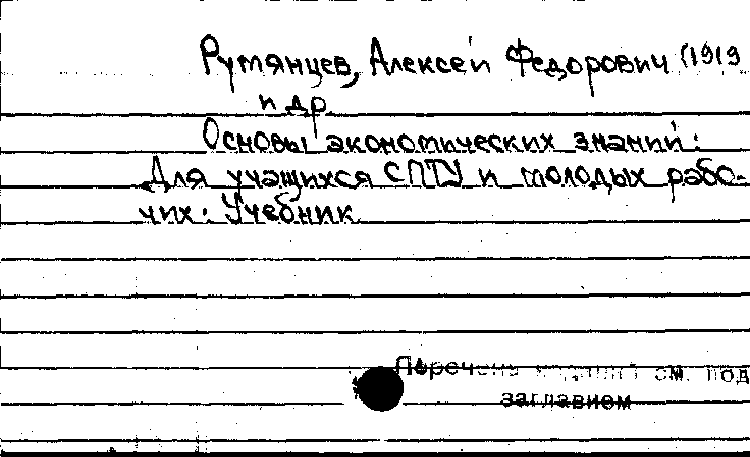 Румянцев, Алексей Федорович (1919
и др.
Основы экономических знаний:
Для учащихся СПТУ и молодых рабо-
чих: Учебник
Перечень изданий см. под
заглавием